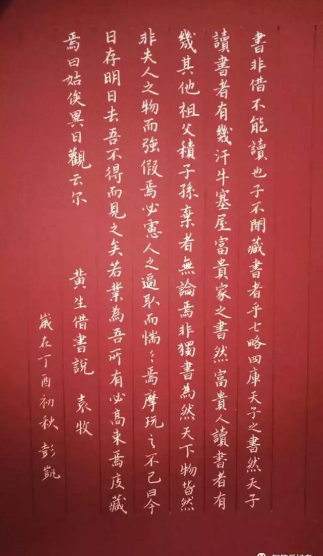 書非借不能讀也子不聞藏書者乎七略四庫天子之書然天子
讀書者有幾汗牛塞屋富貴家之書然富貴人讀書者有
幾其他祖父積子孫棄者無論焉非獨書為然天下物皆然
非夫人之物而強假焉必慮人之逼取而惴〻焉摩玩之不已曰今
日存明日去吾不得而見之矣若業為吾所有必高束焉庋藏
焉曰姑俟異日觀云尔
黄生借書說 袁牧
歲在丁酉初秋彭凱